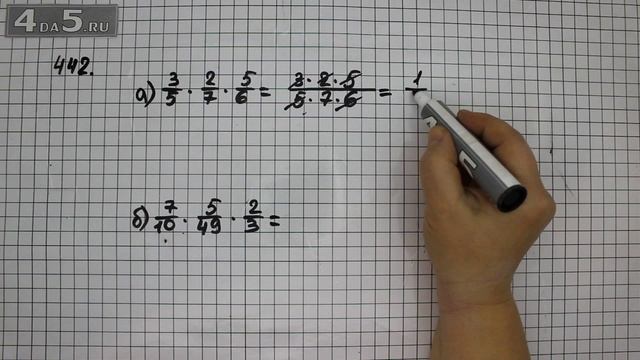 4ДА5.RU
442.
а) 3/5 · 2/7 · 5/6 = 3·2·5/5·7·6 = 1/
б) 7/10 · 5/49 · 2/3 =